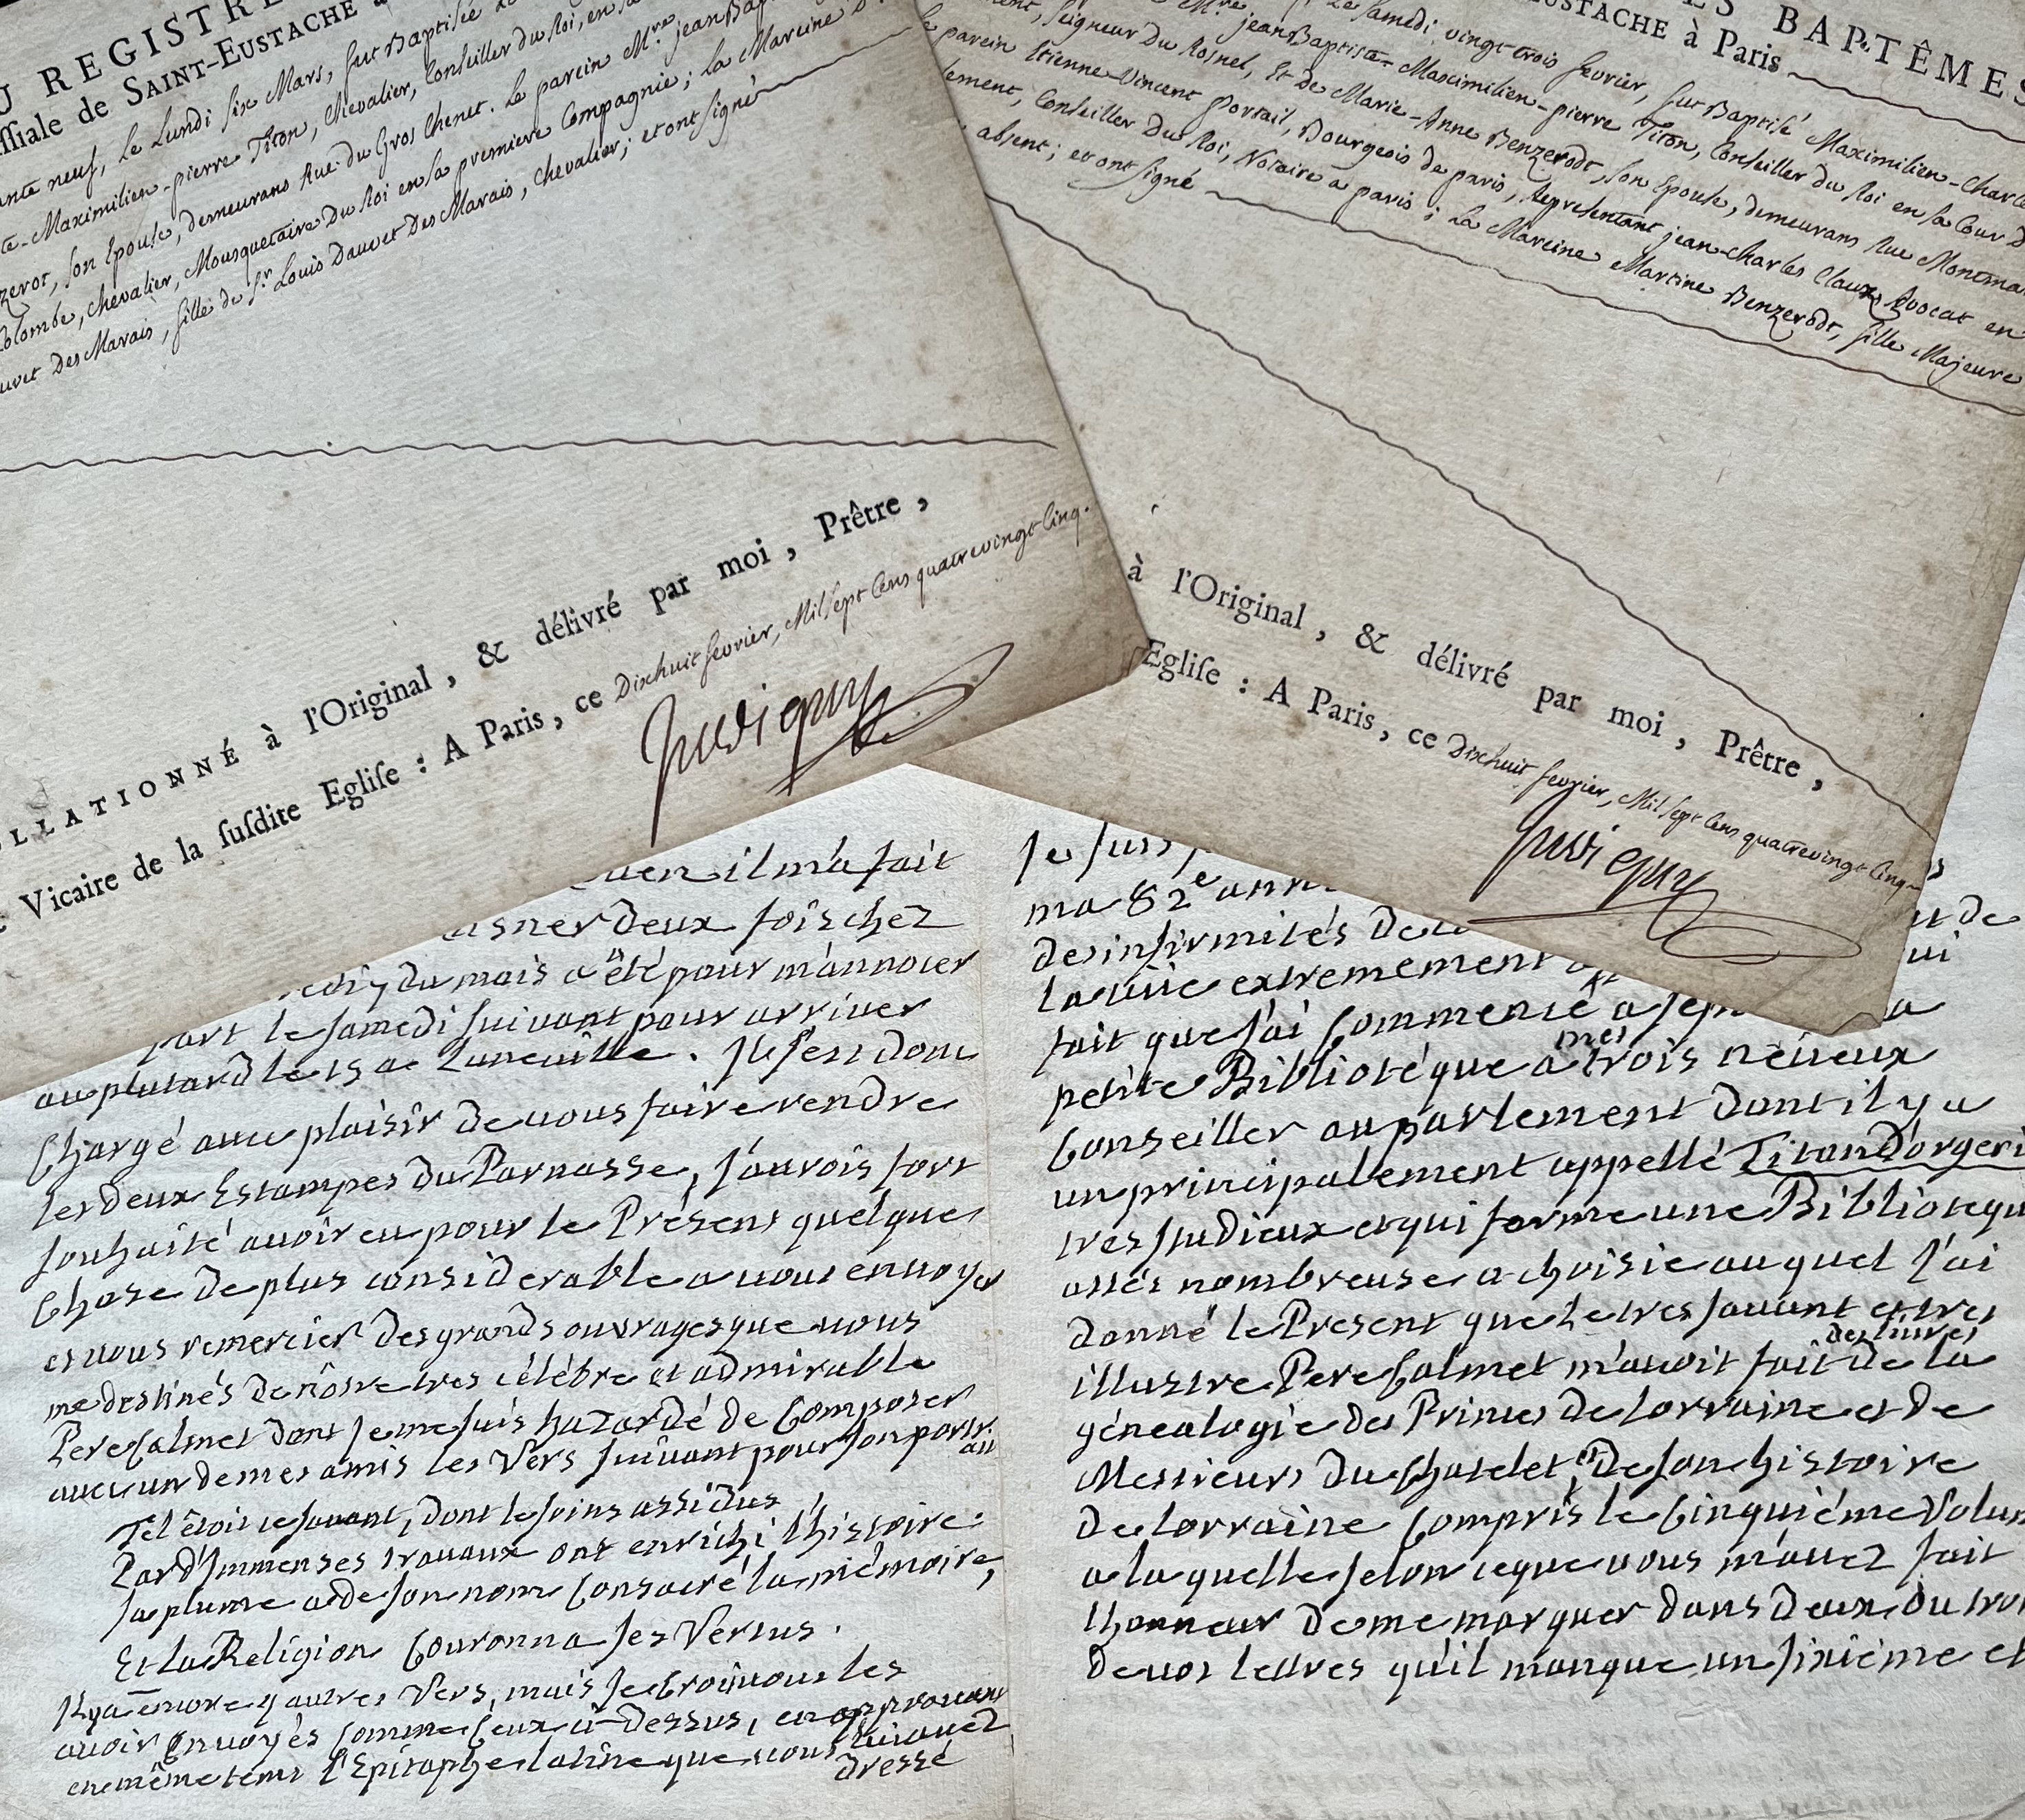 U REGISTRE
ſſiale de SAINT-EUSTACHE à
ante neuf, Le Lundi Six Mars, fut Baptisée
te-Maximilien-pierre Titon, Chevalier, Conseiller du Roi, en sa
zerot, son Epouse, demeurans Rue du Gros Chenet. Le parein Mre. jean Bap
Colombe, chevalier, Mousquetaire Du Roi en sa premiere Compagnie; La Mareine D
uvet Des Marais, fille de Sr. Louis Dauvet Des Marais, chevalier; et ont signé
LLATIONNÉ à l'Original, & délivré par moi, Prêtre,
Vicaire de la ſuſdite Egliſe : A Paris, ce Dixhuit fevrier, Mil sept Cens quatrevingt Cinq.
Juvigny
ES BAPTÊMES
EUSTACHE à Paris
Le Samedi vingt trois fevrier, fut Baptisé Maximilien-Charle
Mre. jean Baptiste-Maximilien-pierre Titon, Conseiller du Roi en sa Cour D
ment, Seigneur Du Rosnel, Et de Marie-Anne Benzerodt, son Epouse, demeurans Rue Montma
Le parein Etienne-Vincent Portail, Bourgeois de paris, Representant jean-Charles Claux, Avocat en
lement, Conseiller du Roi, Notaire a paris; La Mareine Martine Benzerodt, fille Majeure
absent; et ont signé
à l'Original, & délivré par moi, Prêtre,
Egliſe : A Paris, ce Dixhuit fevrier, Mil sept Cens quatrevingt Cinq
Juvigny
il m'a fait
deux fois chez
du mois a été pour m'annocer
part le samedi suivant pour arriver
au plutard le 15 a Luneuille. Il s'est donc
Chargé auec plaisir de uous faire rendre
les deux Estampes du Parnasse, J'aurois fort
souhaité auoir eu pour le Présent quelque
Chose de plus considerable a uous enuoyer
et uous remercier des grands ouvrages que uous
me destinés de nôtre tres célébre et admirable
Pere Calmet dont Je me suis hazardé de Composer
auec un de mes amis les Vers suiuant pour son portr.
au
Tel étoit ce sauant, dont le soins assidus
Par d'Immenses trauaux ont enrichi l'histoire:
sa plume a de son nom Consacré la mémoire,
Et la Religion Couronna ses Vertus.
Il y a encore 4 autres Vers, mais Je Croi uous les
auoir Enuoyés Comme Ceux ci-Dessus, en approuuant
en même tems l'Epitaphe latine que uous lui auez
dressé
Je suis
ma 82e ann
des infirmités de la
de
la uüe extrememen
ui
fait que J'ai Commencé a
a
petite Bibliotéque a mes trois neueux
Conseiller au parlement dont il y a
un principalement appellé Titon D'orgeri
tres studieux et qui forme une Biblioteque
assés nombreuse a choisie au quel J'ai
donné le Present que le tres sauant et tres
illustre Pere Calmet m'auoit fait des liures de la
génealogie des Princes de Lorraine et de
Messieurs du Chatelet, et De son histoire
de Lorraine Compris le Cinquiéme Volum
a la quelle selon ce que uous m'auez fait
lhonneur de me marquer dans deux ou troi
de uos lettres qu'il manque un sixiéme et